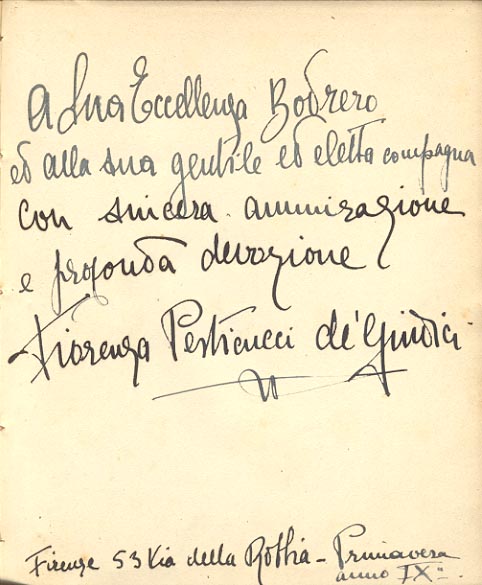 A Sua Eccellenza Bodrero
ed alla sua gentile ed eletta compagna
con sincera ammirazione
e profonda devozione
Fiorenza Perticucci de' Giudici
Firenze 53 Via della Robbia - Primavera
anno IX°